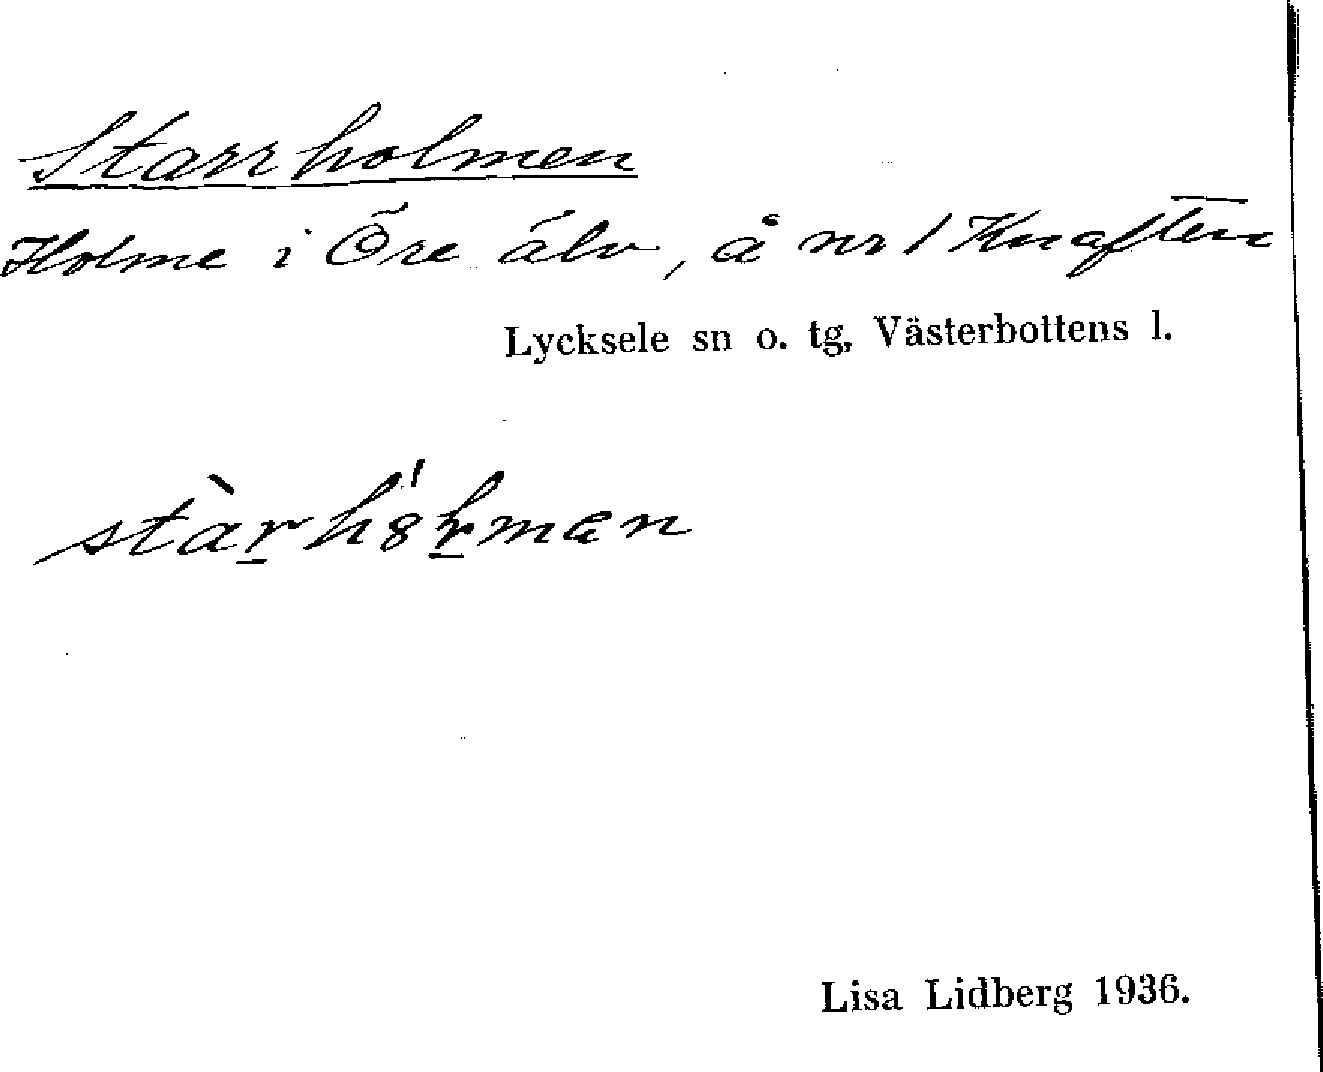 Starrholmen
Holme i Öre älv, å nr 1 Knaften
Lycksele sn o. tg, Västerbottens l.
Lisa Lidberg 1936.